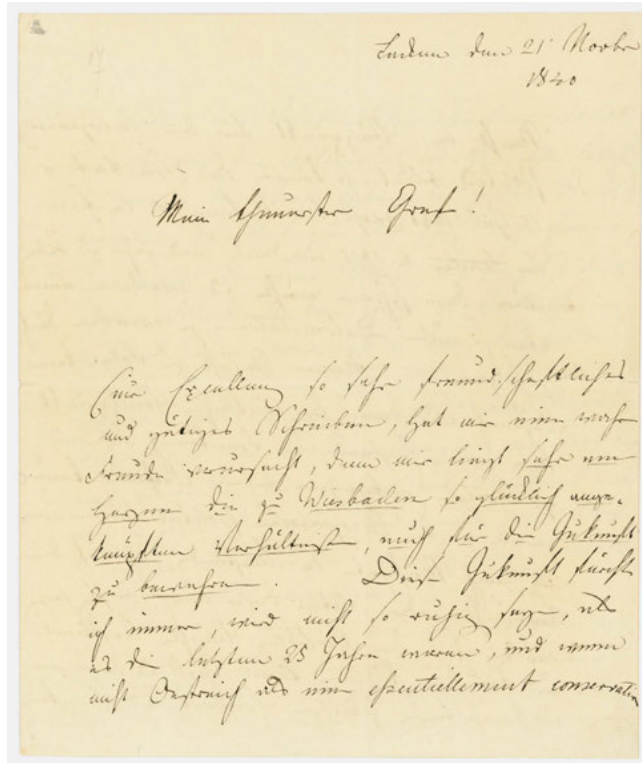 den 21 Novbr
1840
Mein theuerster Graf!
Eure Excellenz so sehr freundschaftliches
und gütiges Schreiben, hat mir eine wahre
Freude verursacht, denn mir liegt sehr am
Herzen die zu Wiesbaden so glücklich ange-
knüpften Verhältnisse, auch für die Zukunft
zu bewahren. Diese Zukunft fürchte
ich immer, wird nicht so ruhig seyn, als
es die letzten 25 Jahre waren, und wenn
nicht Oestreich als eine essentiellement conservative